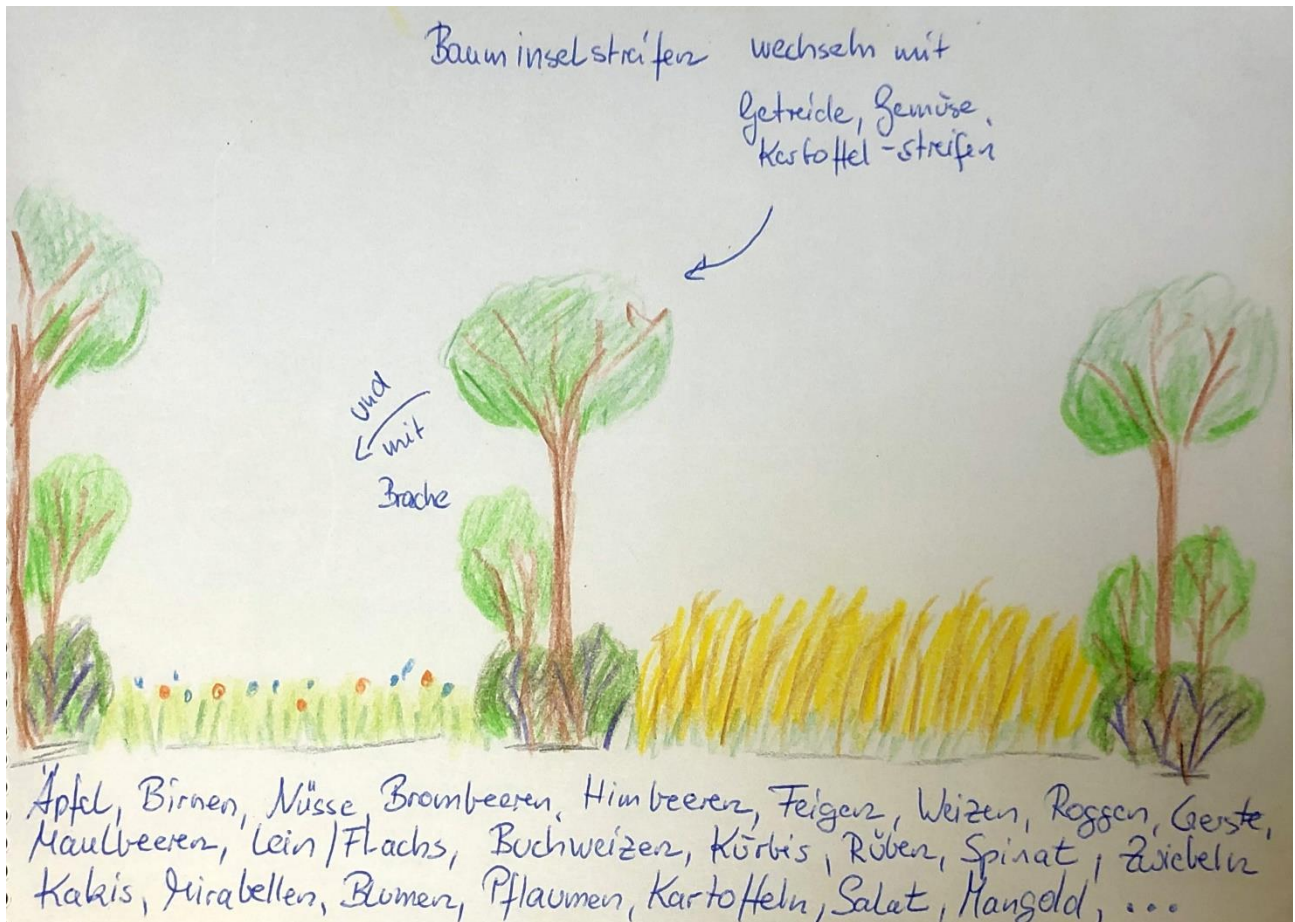 Bauminselstreifen wechseln mit
Getreide, Gemüse,
Kartoffel-streifen
und
mit
Brache
Äpfel, Birnen, Nüsse, Brombeeren, Himbeeren, Feigen, Weizen, Roggen, Gerste,
Maulbeeren, Lein/Flachs, Buchweizen, Kürbis, Rüben, Spinat, Zwiebeln
Kakis, Mirabellen, Blumen, Pflaumen, Kartoffeln, Salat, Mangold, ...